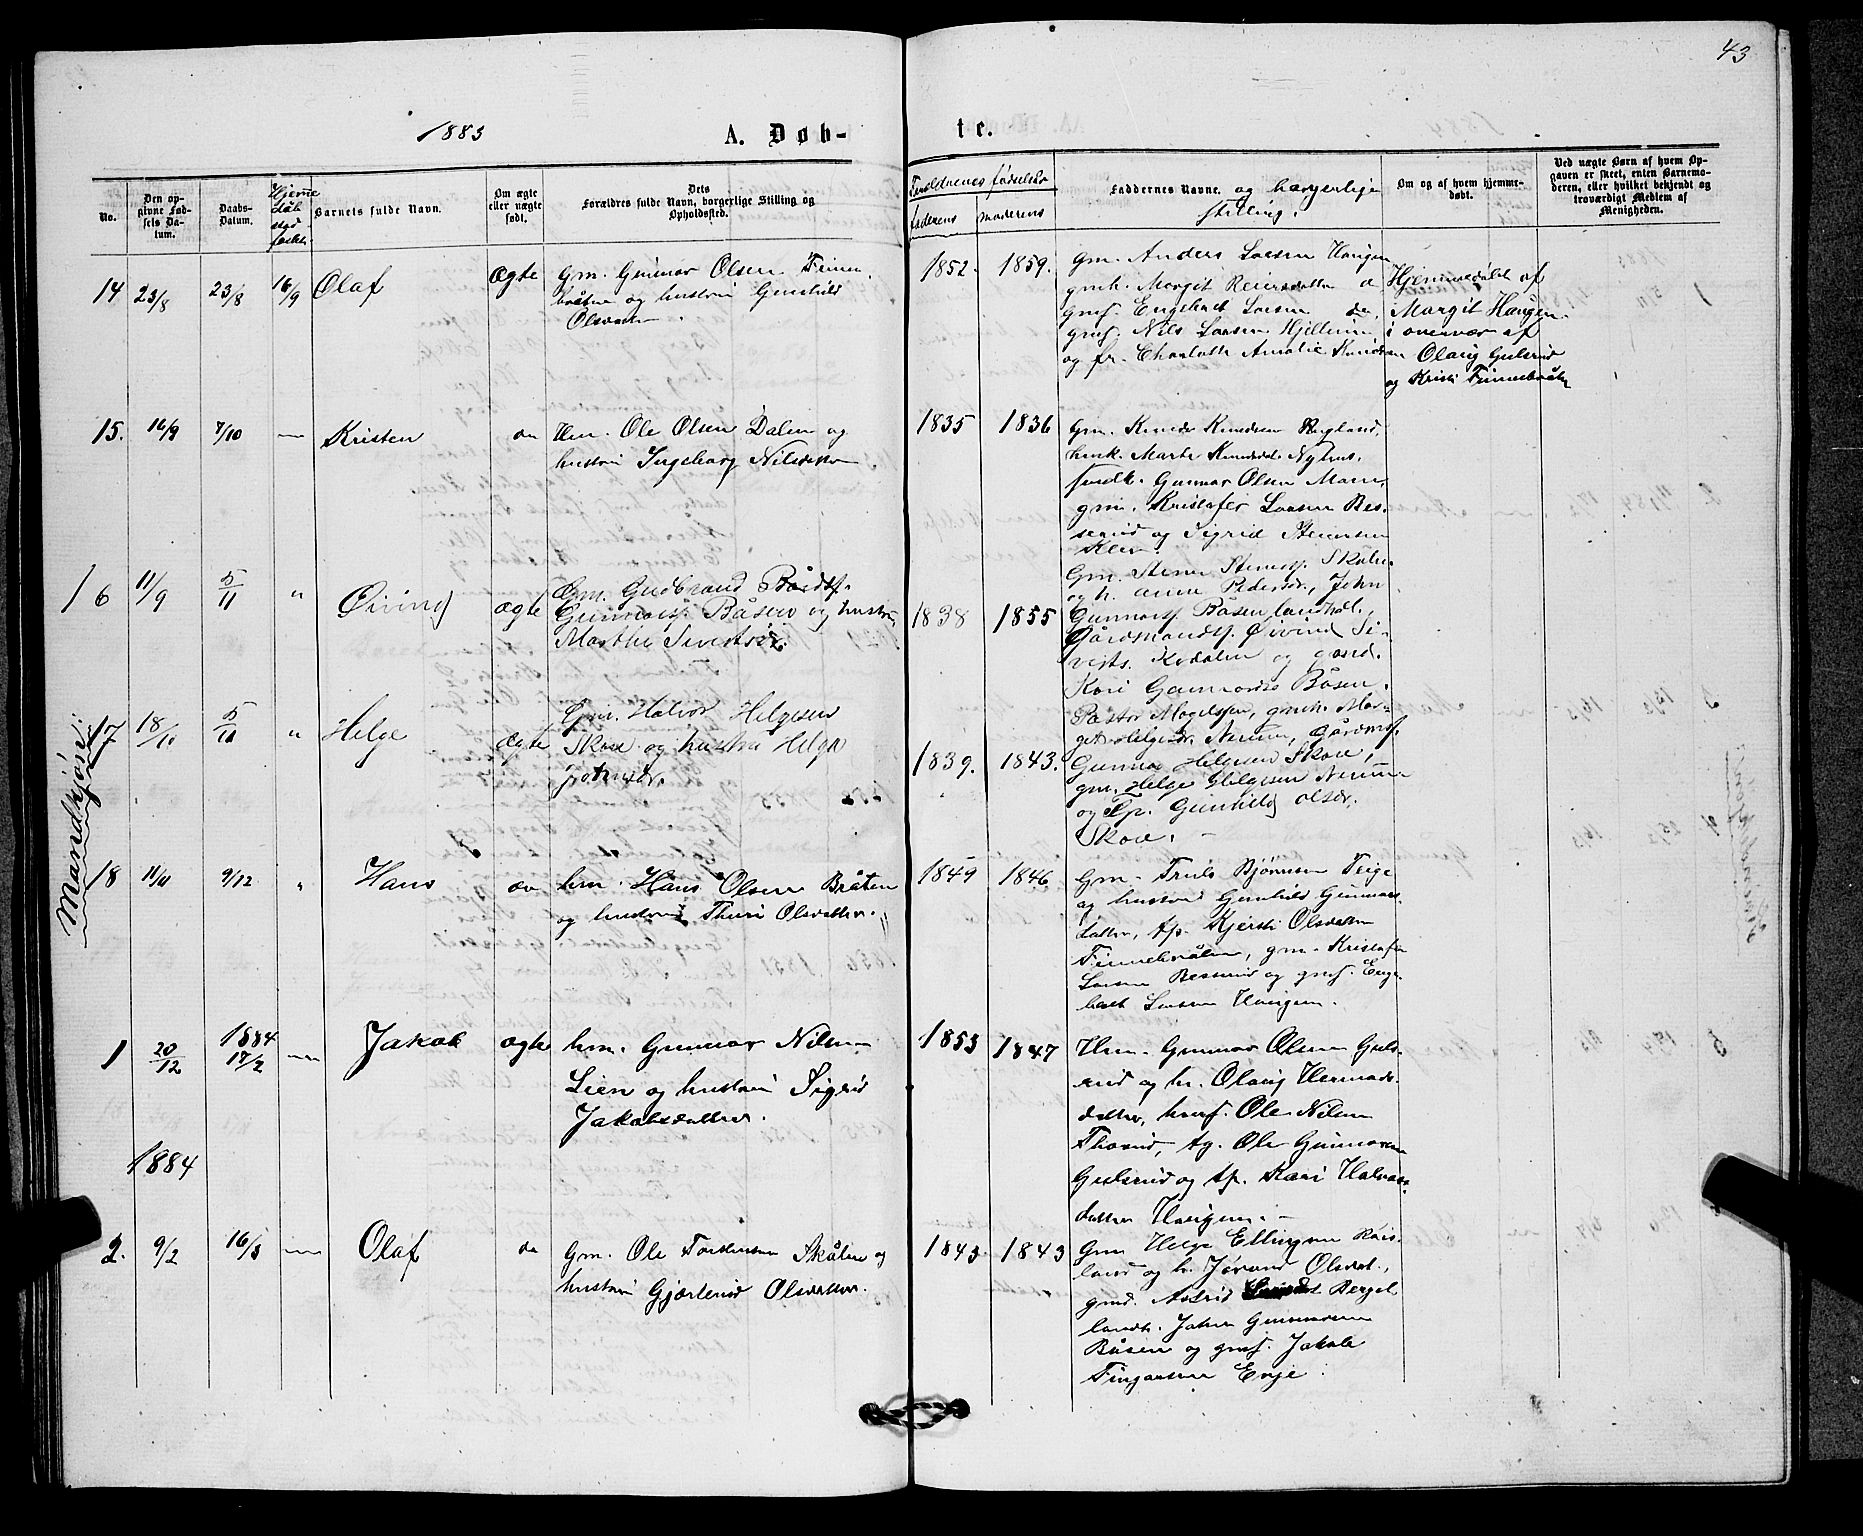 43
1883
A. Døb-
te.
No.
Den op-
givne Fød-
sels Da-
tum.
Daabs-
Datum.
Hjeme
døb
stad
Barnets fulde Navn.
Om ægte
eller uægte
født.
Dets
Forældres fulde Navn, borgerlige Stilling og
Opholdssted.
Forældrenes fødselsår
faderens
moderens
Faddernes Navne. og borgerlige
stilling.
Om og af hvem hjemme-
døbt.
Ved uægte Børn af hvem Op-
gaven er skeet, enten Barnemo-
deren, eller hvilket bekjendt og
troværdigt Medlem af
Menigheden.
14 23/8 23/8 16/9 Olaf Ægte
gm. Gunnar Olsen Finne-
bråten og hustru Gunhild
Olsdatter.
1852. 1859.
gm. Anders Larsen Haugen
gmk. Margit Reiersdatter do
gmf. Engebret Larsen do,
gmf. Nils Larsen
og fr. Charlotte Amalie Knudsen
Hjemmedøbt af
Margit Haugen
i overvær af
Olaug Gulsrud
og Kristi Finnebråten
15. 16/9 7/10 — Kristen do
Hm. Ole Olsen Dalen og
hustru Ingeborg Nilsdatter
1835 1836
gm. Knud Knudsen Rugland,
hmk. Marte Knudsdt. Nyhus,
Gunnar Olsen Moen,
gm. Kristofer Larsen Bes-
serud og Sigrid Steinsen
Kleven.
16 11/9 5/11 " Øivind ægte
Gm. Gudbrand Bårdsf.
Gunnarsf. Båsen og hustru
Marthe Siversdr.
1838 1855
Gm. Stener Stensf. Skålen
og h. Anne Pedersdr, John
Gunnarsf. Båsen landhdl.,
Gårdmandsf. Øivind Si-
verts. Kodalen og gaard.
Kari Gunnarsdr Båsen.
Mandkjøn:
17 18/10 5/11 " Helge ægte
Gm. Halvor Helgesen
Skore og hustru Helga
Johnsdr.
1839. 1843.
Pastor Magelssen, gmk. Mar-
get Helgesdr. Nerum, Gårdmf.
Gunnar Helgesen Skore,
gm. Helge Helgesen Nerum
og Tp. Gunhild Olsdr.
Skore. —
18 11/11 9/12 " Hans do
hm. Hans Olsen Bråten
og hustru Thuri Olsdatter.
1849 1846
Gm. Truls Bjørnsen Teige
og hustru Gunhild Gunnars-
datter, tp. Kjersti Olsdatter
Finnebråten, gm. Kristofer
Larsen Besserud og gmf. Enge-
bret Larsen Haugen.
1 20/12 1884 17/2 — Jakob ægte
hm. Gunnar Nilsen
Lien og hustru Sigrid
Jakobsdatter.
1853 1847
Hm. Gunnar Olsen Guls-
rud og h. Olaug Hermods-
datter, hmf. Ole Nilsen
Thorrud, tg. Ole Gunnarsen
Gulsrud og tp. Kari Halvors-
datter Haugen. —
1884
2. 9/2 16/3 — Olaf do
Gm. Ole Torstensen Skålen og
hustru Gjertrud Olsdatter.
1843. 1843
Gm Helge Ellingsen Røis-
land og h. Jørand Olsdat.,
gmd. Astrid Bergel
landh. John Gunnarsen
Båsen og gmf. Jakob
Fingarsen Enje.